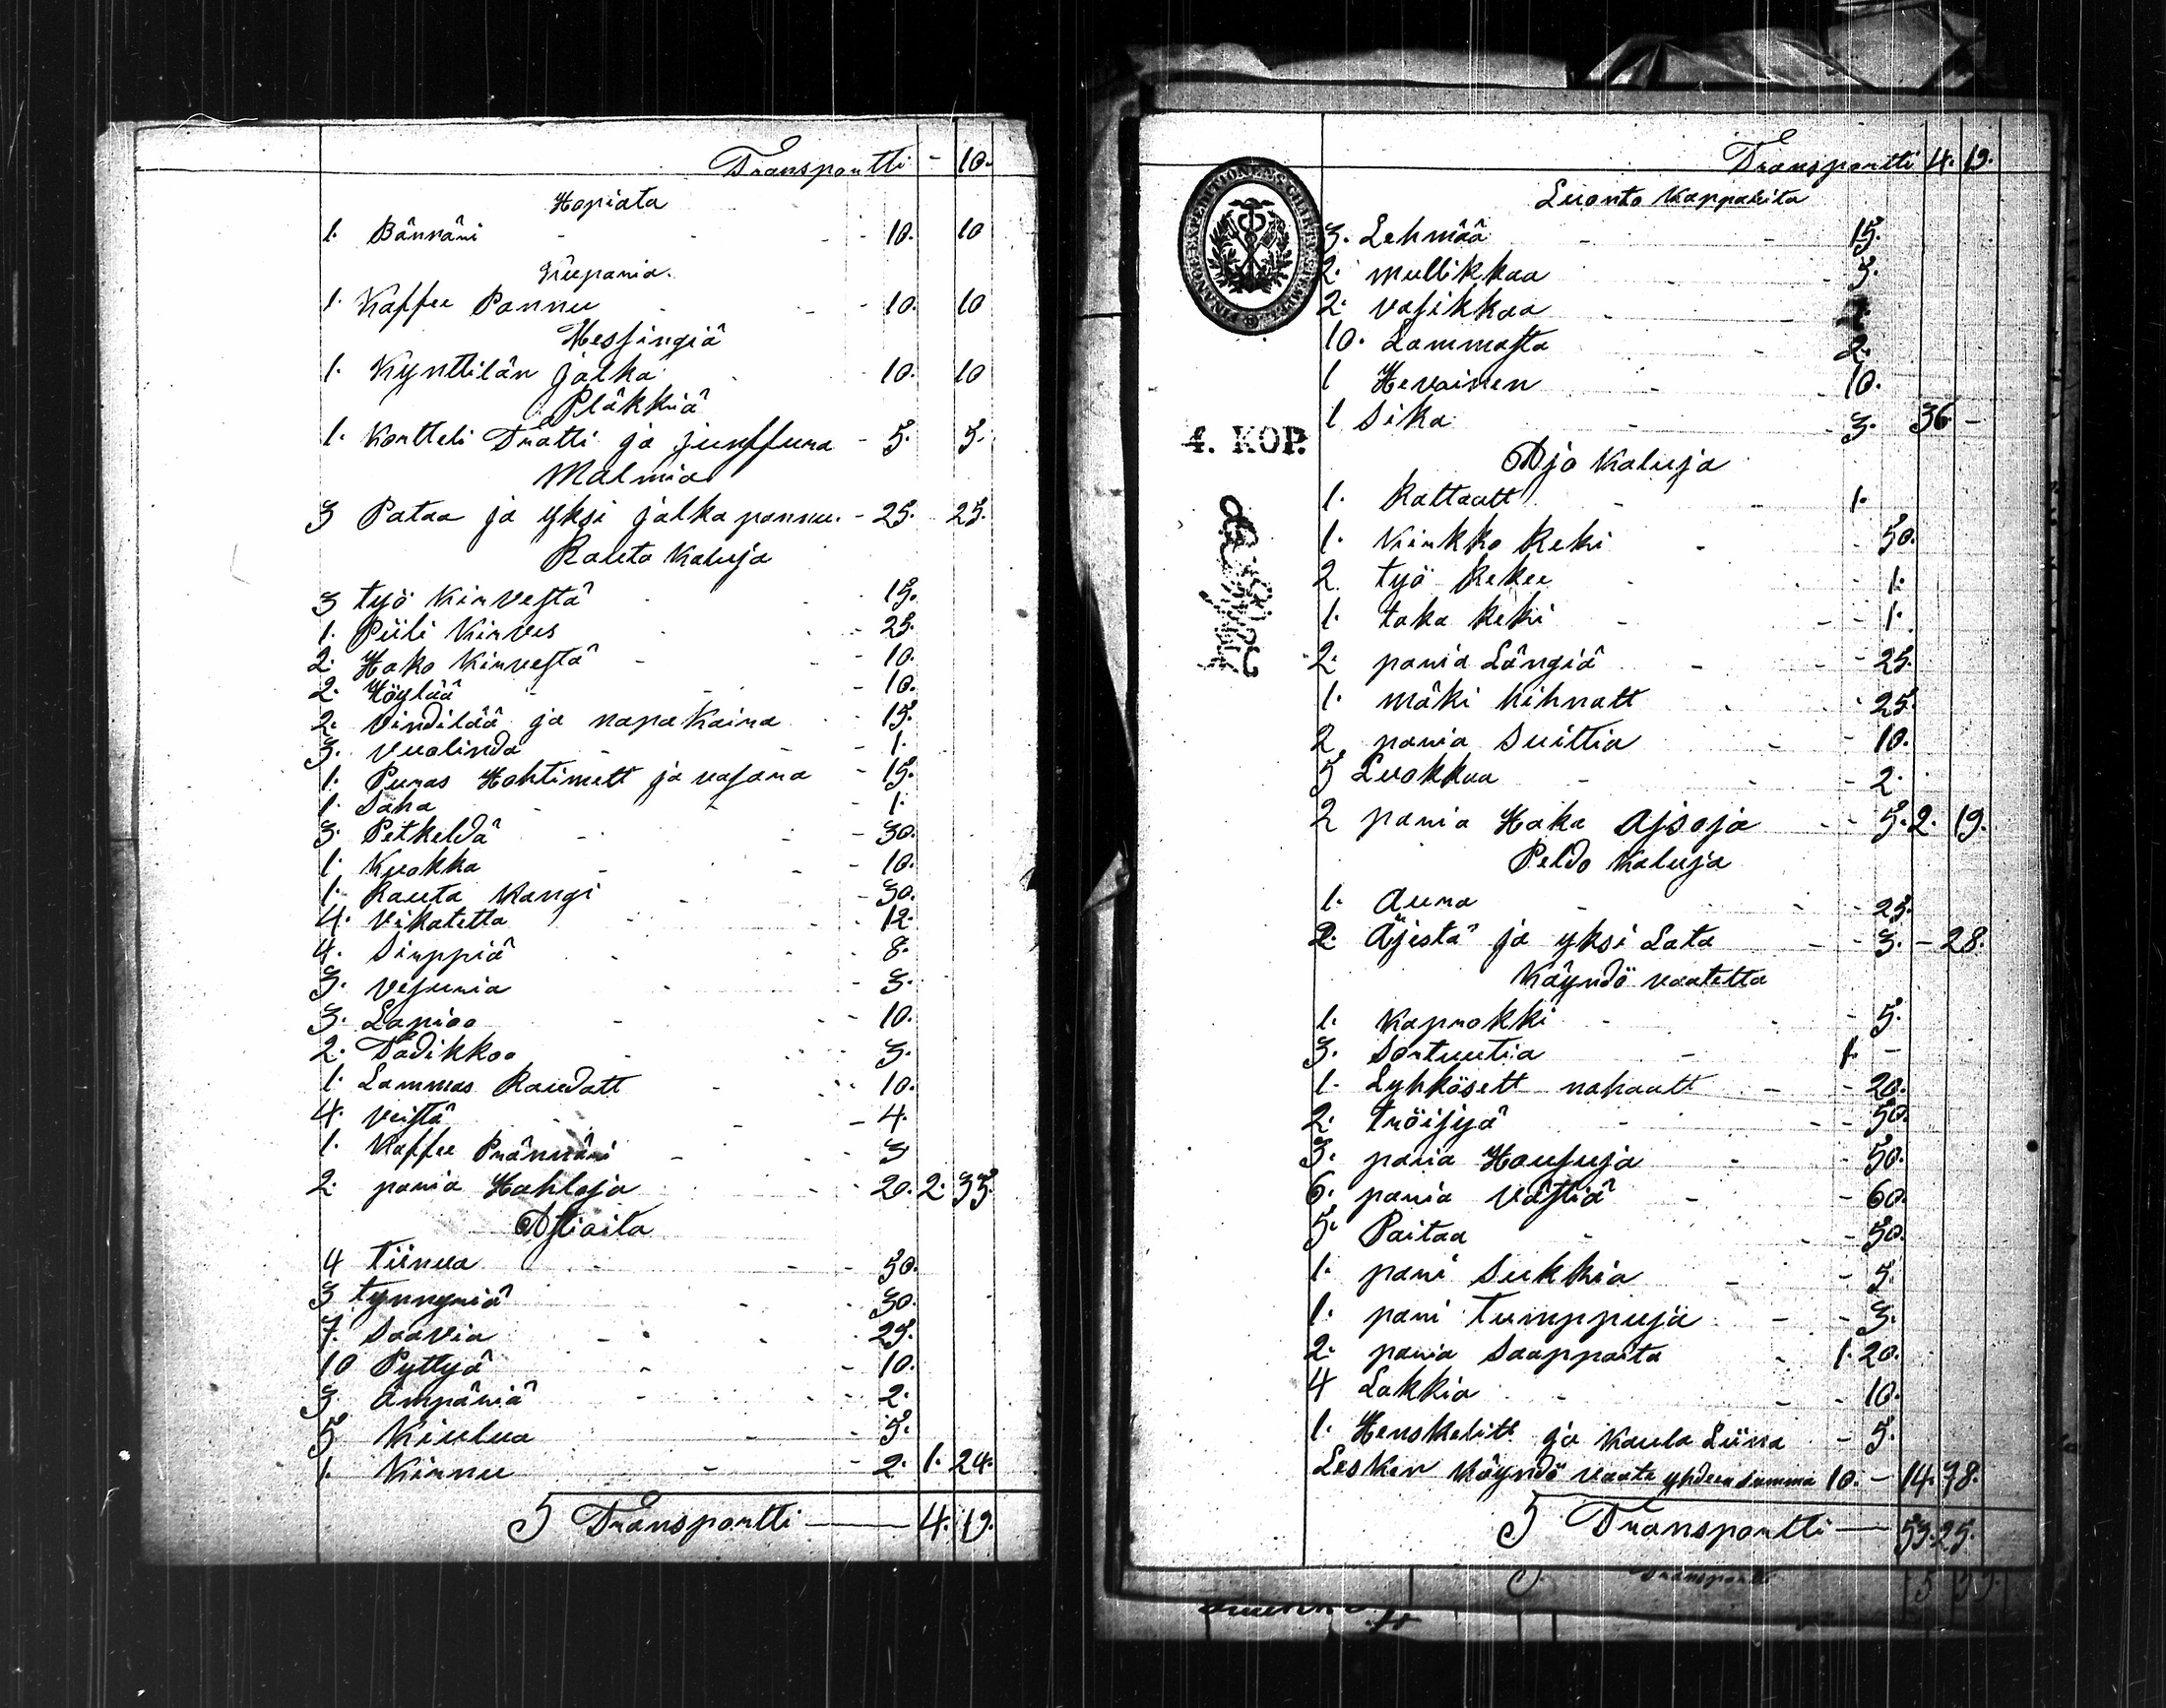 Transportti - 10.
Hopiata
1. Bännäni - - - 10. 10
Kuparia.
1. Kaffee Pannu - - 10. 10
Messingiä
1. Kynttilän jalka - 10. 10
Pläkkiä
1. Kortteli Tratti ja junffura - 5. 5.
Malmia
3 Pataa ja yksi jalka pannu. - 25. 25.
Rauta Kaluja
3 työ Kirvestä - - 15.
1. Piili Kirves - - 25.
2. Hako Kirvestä - - 10.
2. Höylää - - 10.
2. Vindilää ja napakaira - 15.
3. Vuolinda - - 1.
1. Puras Hohtimett ja vasara - 15.
1. Saha - - 1.
3. Petkeldä - - 30.
1. Kuokka - - 10.
1. Rauta Kangi - - 30.
4. Vikatetta - - 12.
4. Sirppiä - - 8.
3. Vesuria - - 3.
3. Lapioo - - 10.
2. Tadikkoo - - 3.
1. Lammas Raudatt - - 10.
4. Veistä - - 4.
1. Kaffee Prännäri - - 3
2. paria Hahloja - - 20. 2. 35.
Astioita
4 Tiinua - - 30.
3 tynnyriä - - 30.
7. Saavia - - 25.
10 Pyttyä - - 10.
3. Ämpäriä - - 2.
5 Kiulua - - 5.
1. Kirnu - - 2. 1. 24.
5 Transportti — 4. 19.
Transportti 4. 19.
Luonto Kappaleita
3. Lehmää - - 15.
2. mullikkaa - - 5.
2. vasikkaa - -
10. Lammasta - - 2.
1 Hevoinen - - 10.
1 Sika - - 3. 36 -
4. KOP.
Ajo Kaluja
1. Rattaatt - - 1.
1. Kirkko Reki - - 50.
2 työ Rekee - - 1.
1. taka Reki - - 1.
2. paria Längiä - - 25.
1. mäki hihnatt - - 25.
2. paria Suittia - - 10.
5 Luokkaa - - 2.
2 paria Haka Ajsoja - - 5. 2. 19.
Peldo Kaluja
1. Aura - - 25.
2. Äjestä ja yksi Lata - - 3. - 28.
Käyndö vaatetta
1. Kaprokki - - 5.
3. Sortuutia - 1. -
1. Lyhkösett nahaatt - - 20.
2. tröijyä - - 50.
3. paria Housuja - - 50.
6. paria västiä - - 60.
5. Paitaa - - 50.
1. pari Sukkia - - 5.
1. pari Tumppuja - - 3.
2. paria Saappaita - 1. 20.
4 Lakkia - - 10.
1. Henskelitt ja Kaula Liina - 5.
Lesken Käyndö vaate yhdeen summa 10. - 14. 78.
5 Transportti — 53. 25.
Transportti